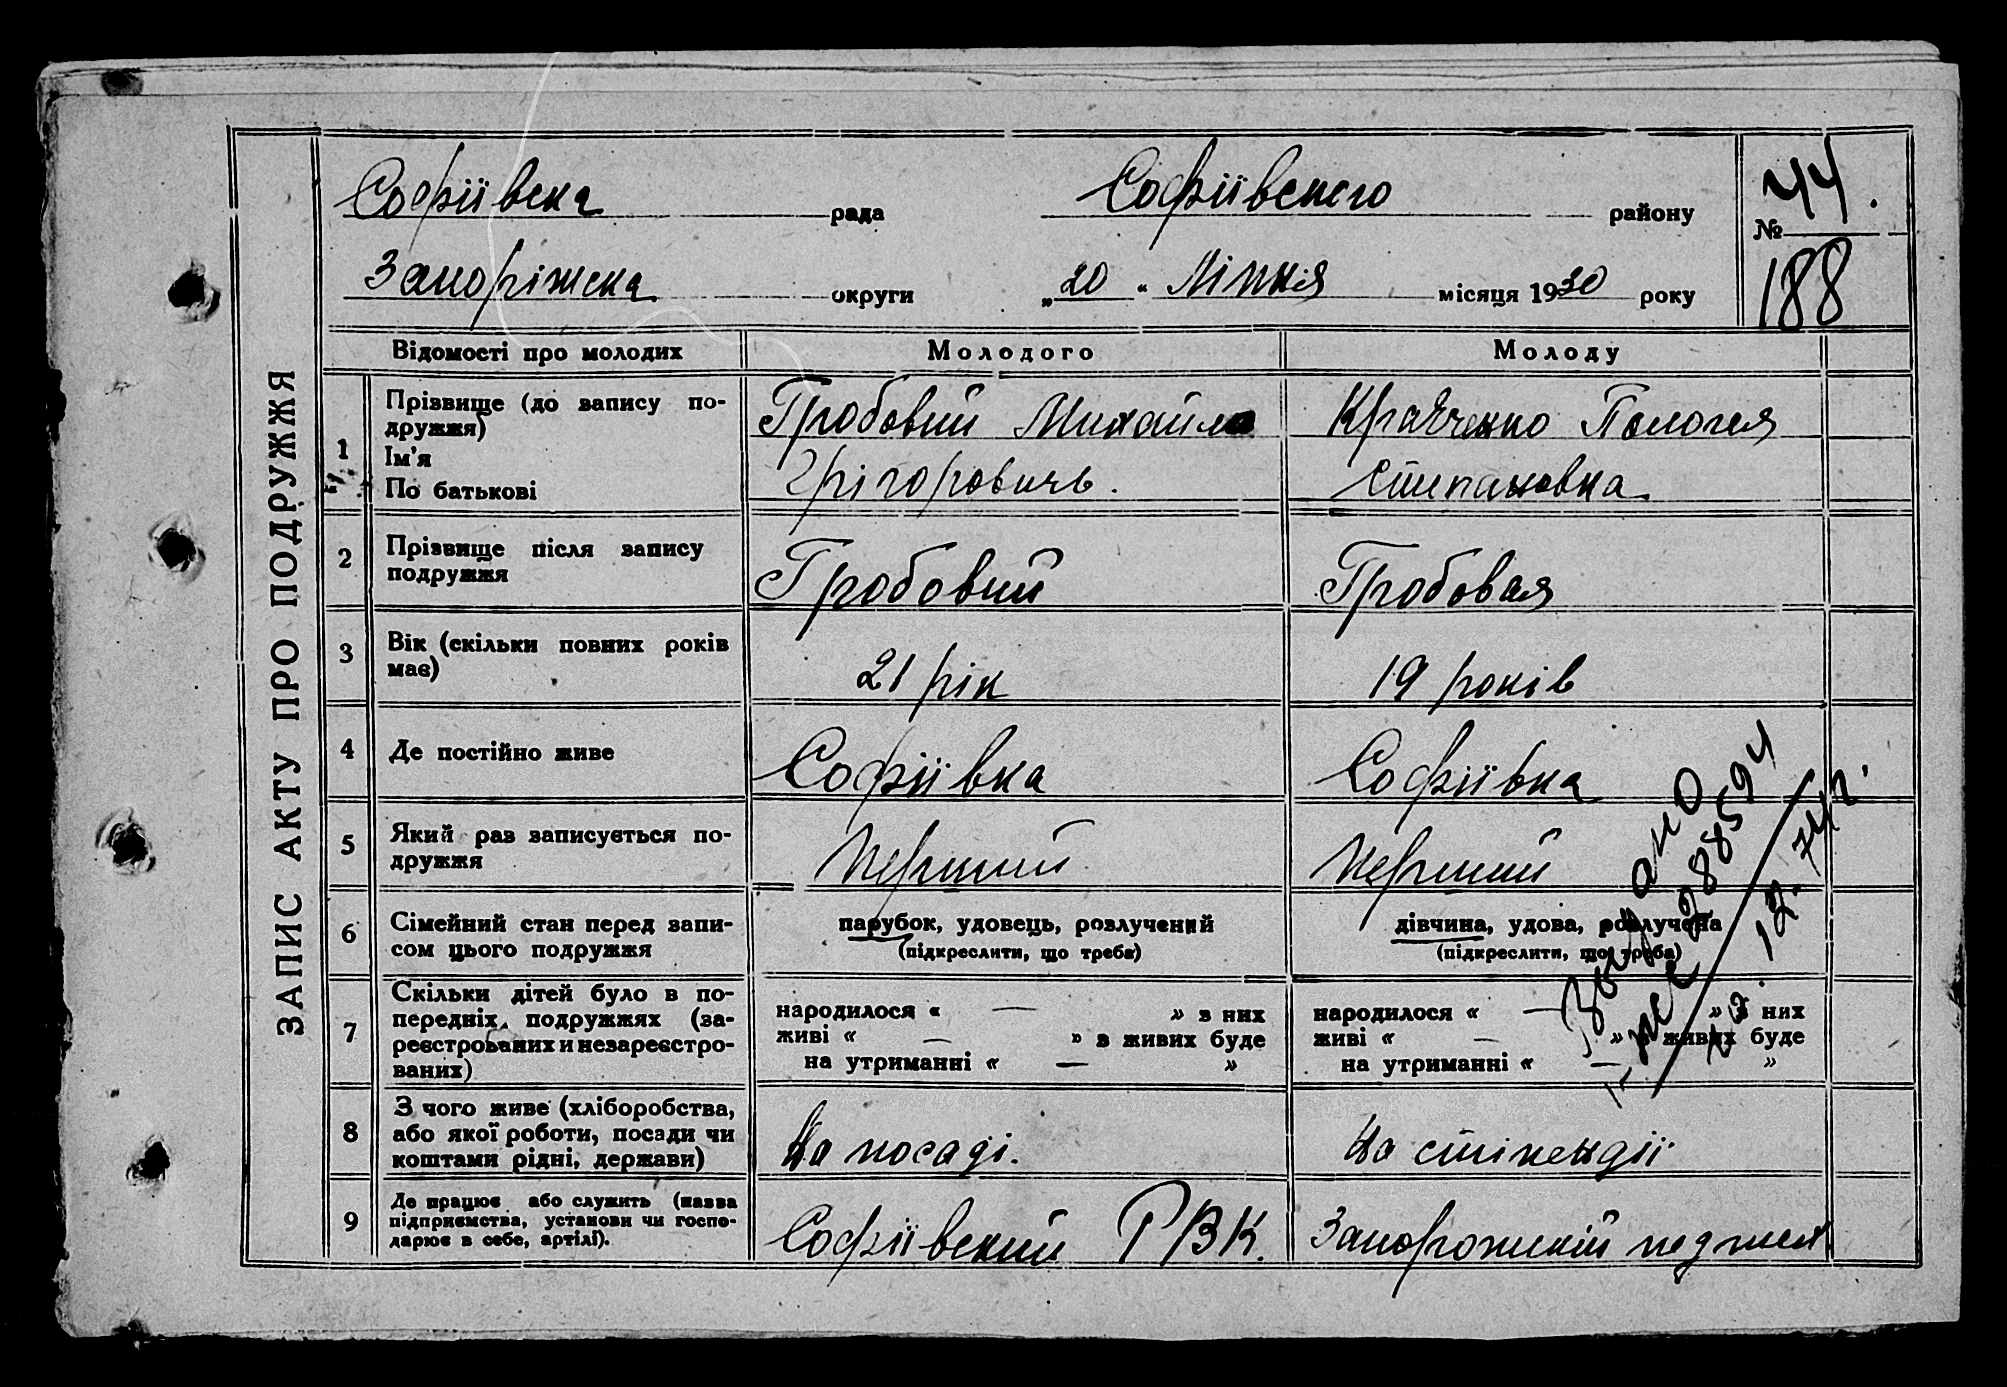 ЗАПИС АКТУ ПРО ПОДРУЖЖЯ
Софіівска рада Софіівского району № 44.
Запоріжска округи „20“ Липня місяця 1930 року 188
Відомості про молодих Молодого Молоду
1 Прізвище (до запису по-
дружжя)
Ім'я
По батькові
Гробовий Михайло
Грігоровичь.
Кравченко Пологея
Степановка
2 Прізвище після запису
подружжя
Гробовий Гробовая
3 Вік (скільки повних років
має)
21 рік 19 років
4 Де постійно живе Софіівка Софіівка
5 Який раз записується по-
дружжя
Перший Перший
6 Сімейний стан перед запи-
сом цього подружжя
парубок, удовець, розлучений
(підкреслити, що треба)
дівчина, удова, розлучена
(підкреслити, що треба)
7 Скільки дітей було в по-
передніх подружжях (за-
реєстрованих и незареєстро-
ваних)
народилося « — » з них
живі « — » з живих буде
на утриманні « — »
народилося « — » з них
живі « — » з живих буде
на утриманні « — »
8 З чого живе (хліборобства,
або якої роботи, посади чи
коштами рідні, держави)
На посаді. На стіпендіі
9 Де працює або служить (назва
підприємства, установи чи госпо-
дарює в себе, артілі).
Софіівский РВК. Запорожский педтех.
Выдано
988594
12. 74г.